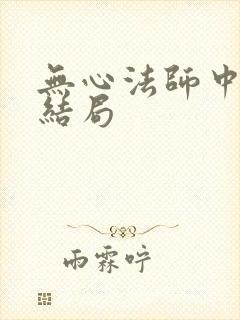 無心法師中
結局
雨霖咛